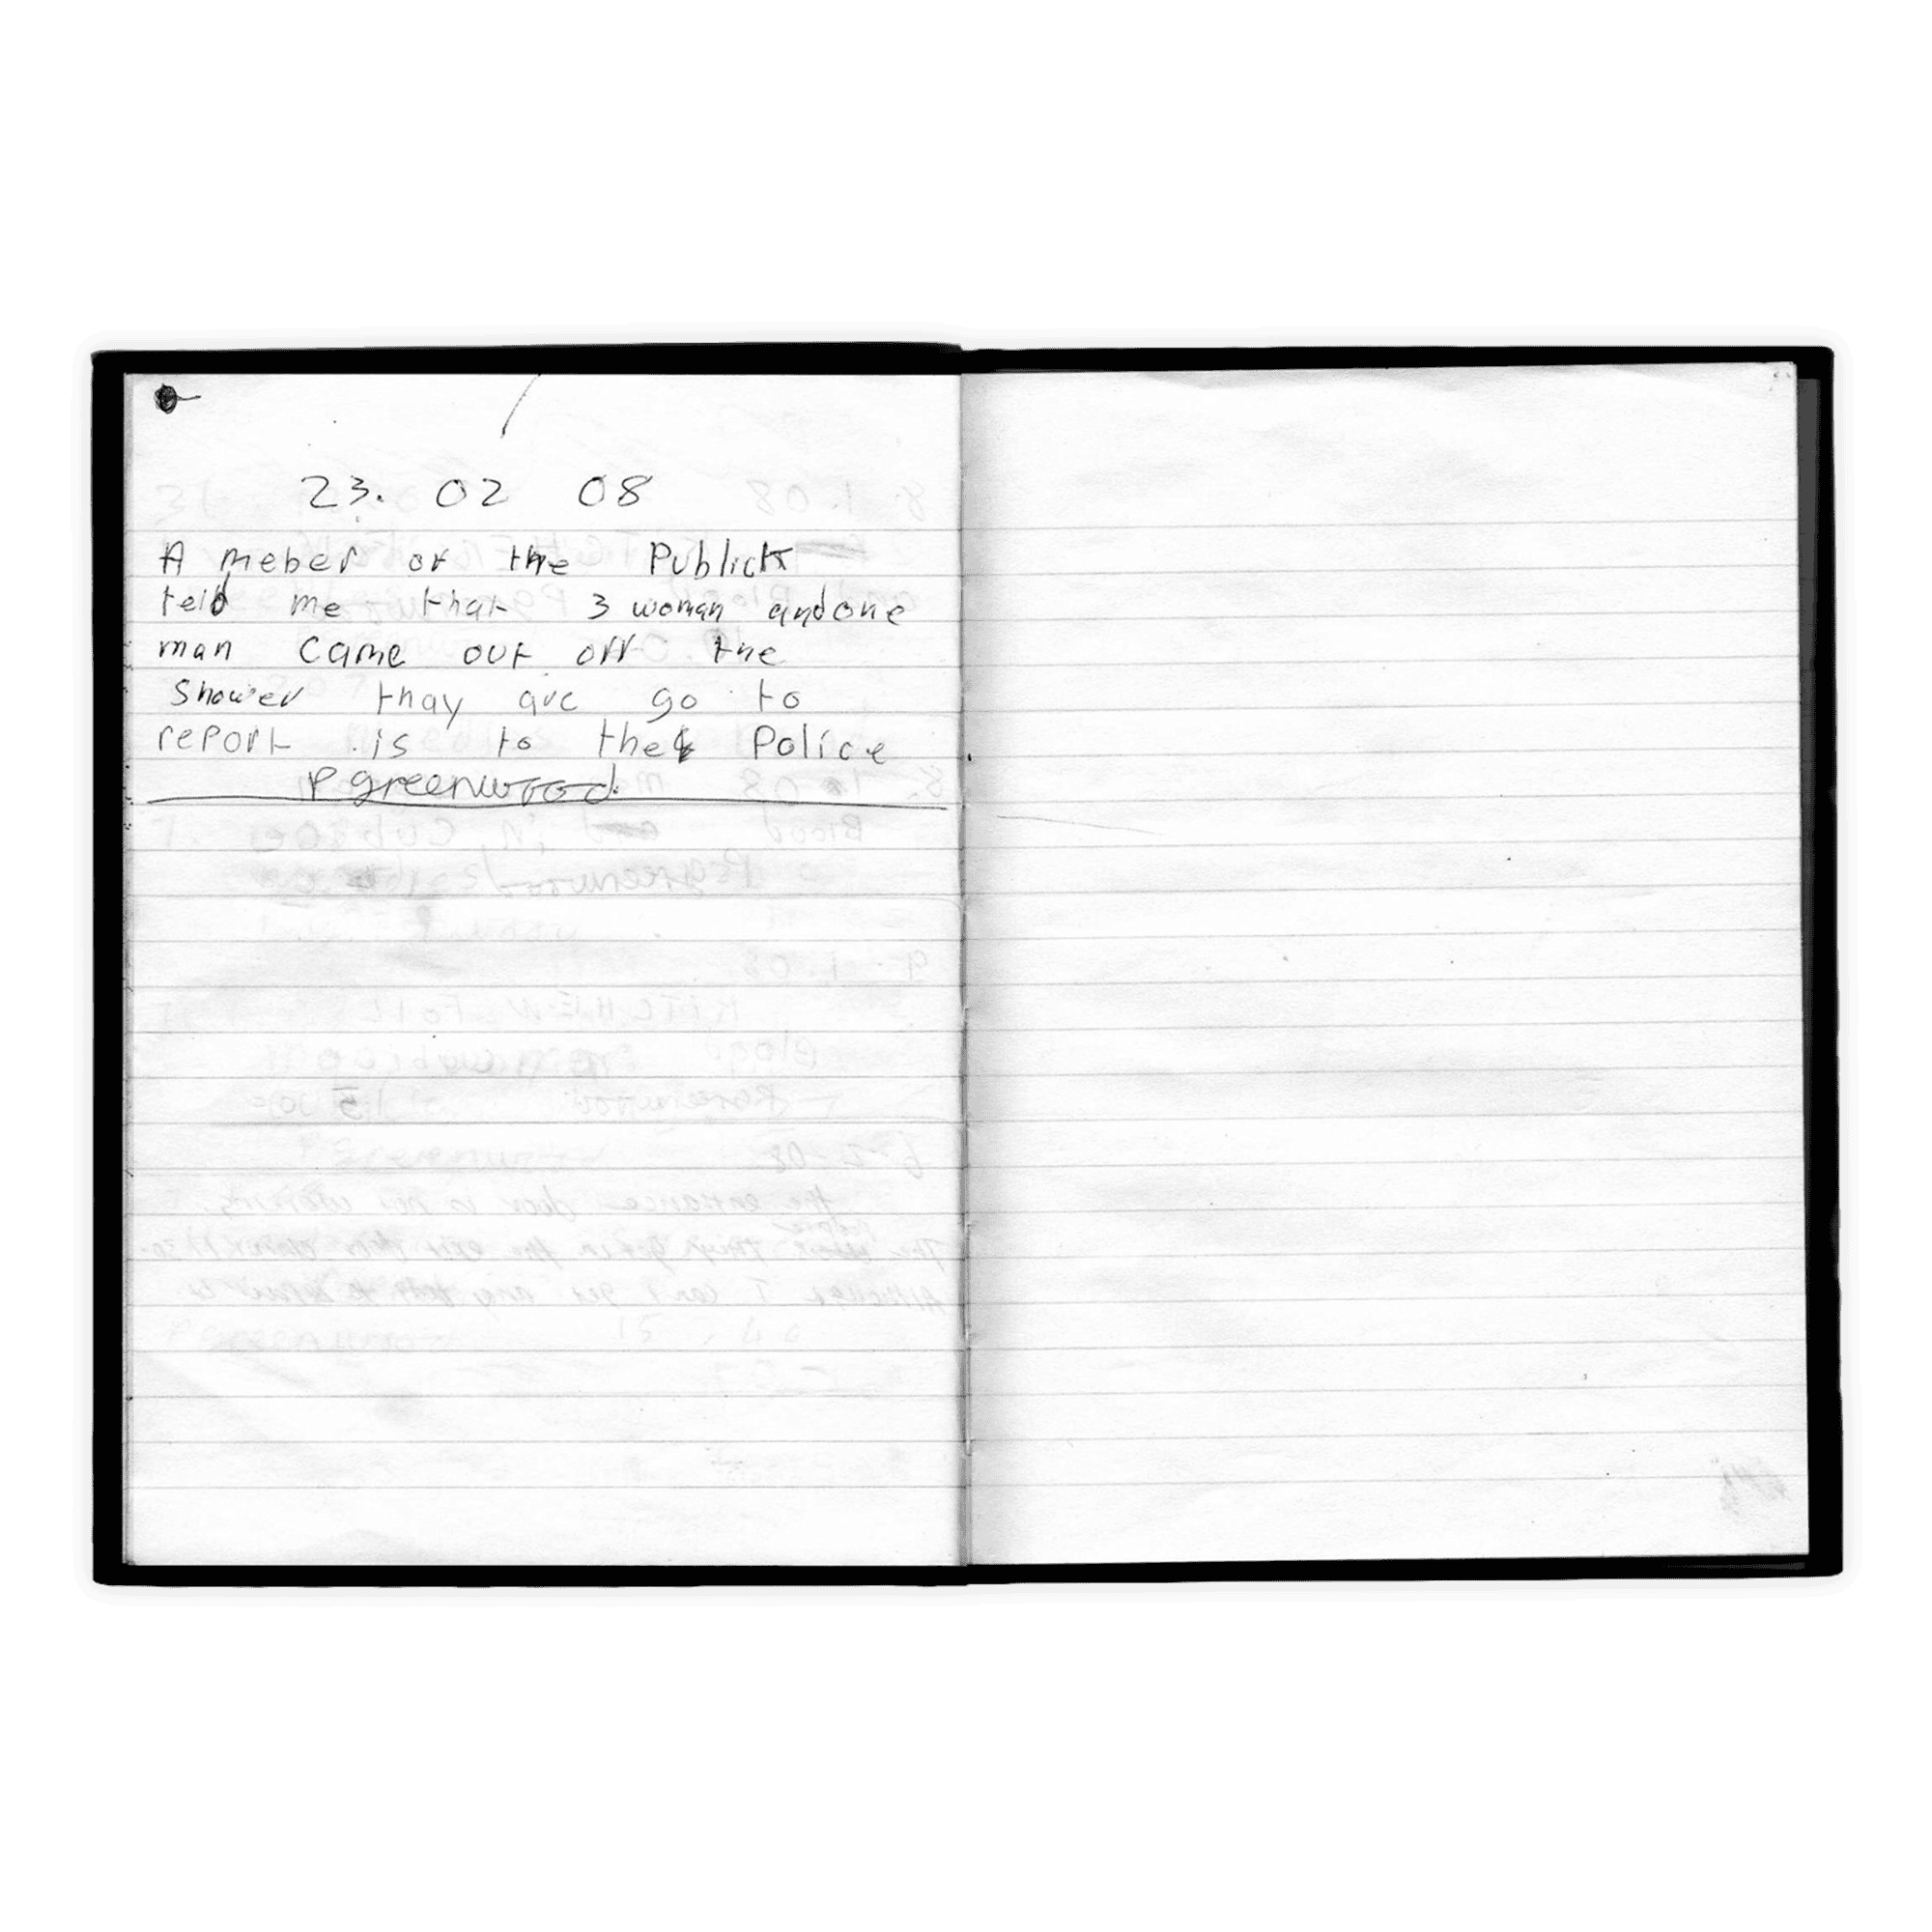 23. 02 08
A meber of the Publick
teld me that 3 woman and one
man came out off the
Shower thay are go to
report is to the Police
P greenwood